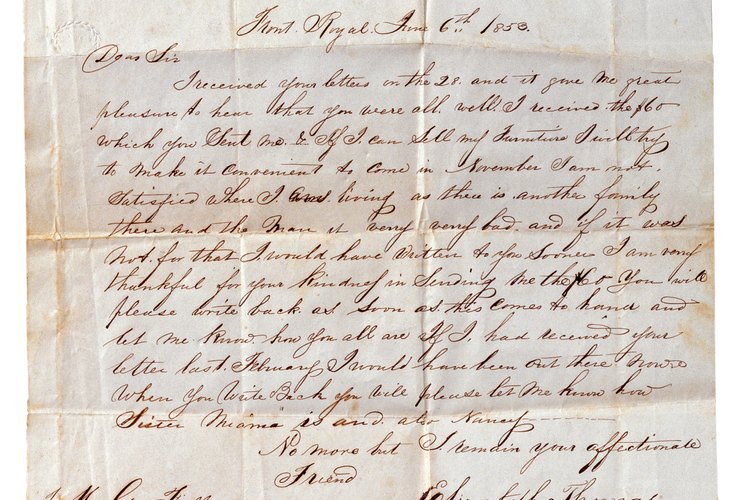 Front Royal. June 6th 1853.
Dear Sir
I received your letters on the 28. and it gave me great
pleasure to hear that you were all. well. I received the $60
which you Sent me. & If I can Sell my Furniture I will try
to make it convenient to come in November I am not.
Satisfied where I am living as there is another family
there and the Man it very very bad. and if it was
not. for that I would have written to you Sooner I am very
thankful for your kindness in Sending me the $60 You will
please write back as soon as this comes to hand and
let me know how you all are If I. had received your
letter last. February I would have been out there Now
When you Write Back you will please let me know how
Sister is and. also Nancy
No more but I remain your affectionate
Friend
Elizabeth